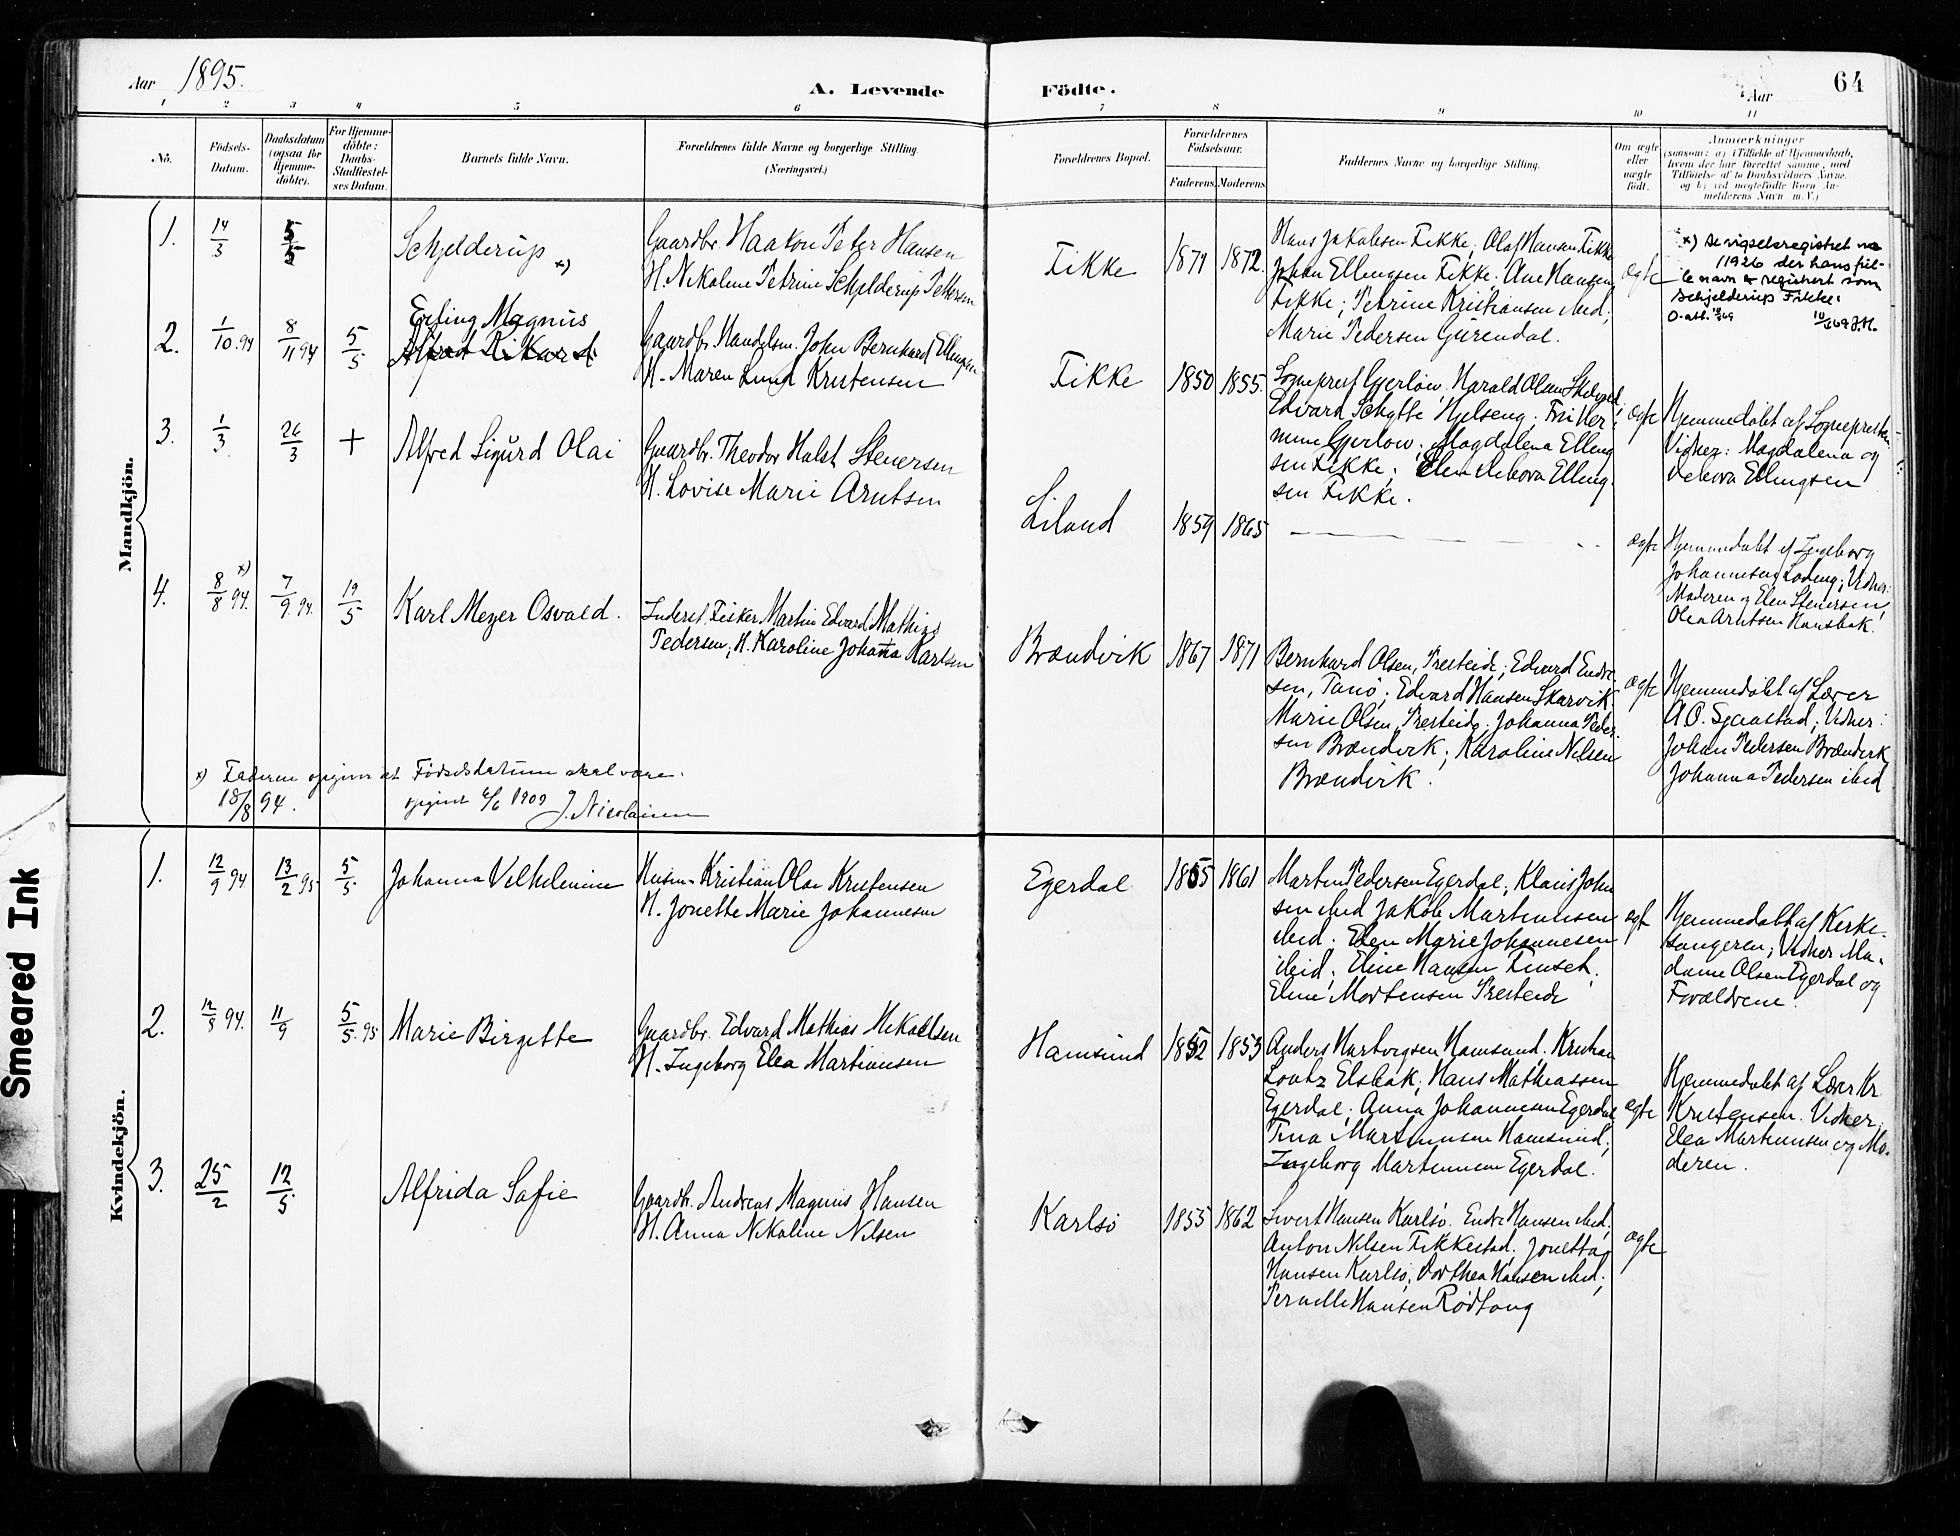 Aar 1895.
A. Levende Födte.
Aar 64
1 2 3 4 5 6 7 8 9 10 11
No.
Födsels-Datum.
Daabsdatum (ogsaa for Hjemme-döbte).
For Hjemme-döbte: Daabs-Stadfæstel-ses Datum.
Barnets fulde Navn.
Forældrenes fulde Navne og borgerlige Stilling. (Næringsvei.)
Forældrenes Bopæl.
Forældrenes Födselsaar.
Faderens Moderens
Faddernes Navne og borgerlige Stilling.
Om ægte eller uægte födt.
Anmærkninger
(saasom: a) i Tilfælde af Hjemmedaab,
hvem der har forrettet samme, med
Tilföielse af to Daabsvidners Navne.
og b) ved uægtefödte Börn An-
melderens Navn m. V.)
Mandkjön.
1. 14/3 5/5 Schjelderup x)
Gaardbr. Haakon Peter Hansen
H. Nikoline Petrine Schjelderup Pettersen
Fikke 1871 1872.
Hans Jakobsen Fikke; Olaf Hansen Fikke
Johan Ellingsen Fikke; Ane Hansen
Fikke; Petrine Kristiansen ibid;
Marie Pedersen Gürendal.
ægte
x) I vigselsregistret
1926 der hans ful-
le navn er registrert som
Schjelderup Fikke.
2. 1/10.94 8/11 94 5/5
Erling Magnus
Alfred Rikard
Gaardbr. Handelsm. John Bernhard Ellingsen
H. Maren Lund Kristensen
Fikke 1850 1855.
Sogneprest Gjerløw, Harald Olsen
Edvard Schytte Hjelseng;
mine Gjerløw; Magdalena Elling
sen Fikke; Elen Debora Elling
sen Fikke.
ægte
Hjemmedøbt af Sognepresten
Vidner: Magdalena og
Debora Ellingsen
3. 1/3 26/3 + Alfred Sigurd Olai
Gaardbr. Theodor Holst Stenersen
H. Lovise Marie Arntsen
Liland 1859 1865
ægte
Hjemmedøbt af Ingeborg
Johannesen Lodeng; Vidner:
Moderen og Elen Stenersen,
Olea Arntsen Hansbak.
4. 8/8 94. x) 7/9.94. 19/5 Karl Meyer Osvald.
Inderst, Fisker Martin Edvard Mathias
Pedersen; H. Karoline Johanna Karlsen
Brændvik 1867 1871
Bernhard Olsen, Presteide; Edvard Endre
sen, Tanø; Edvard Hansen Skarvik
Marie Olsen, Presteide; Johanna Peder
sen Brændvik; Karoline Nilsen
Brændvik.
ægte
Hjemmedøbt af Lærer
A.O. Sjaastad; Vidner:
Johan Pedersen Brændvik
Johanna Pedersen ibid
x) Faderen opgiver at Fødselsdatum skal være
18/8 94. 1909 J. Nicolaissen
Kvindekjön.
1. 12/9 94 13/2 95 5/5 Johanna Vilhelmine
Husm. Kristian Olai Kristensen
H. Jonette Marie Johannesen
Egerdal 1865 1861
Martin Pedersen Egerdal; Klaus John
sen ibid Jakob Martinusen
ibid. Elen Marie Johannesen
ibid; Eline Hansen Finset;
Eline Mortensen Presteide
ægte
Hjemmedøbt af Kirke-
sangeren; Vidner Ma-
dame Olsen Egerdal og
Forældrene.
2. 94. 11/9 5/5.95 Marie Birgitte
Gaardbr. Edvard Mathias Mikaelsen
H. Ingeborg Elea Martinusen
Hamsund 1852 1853
Anders Hartvigsen Hamsund; Kristian
Lontz Elsbak; Hans Mathiassen
Egerdal; Anna Johannesen Egerdal
Tina Martinusen Hamsund;
Ingeborg Martinusen Egerdal.
ægte
Hjemmedøbt af Lærer Kr
Kristensen. Vidner:
Elea Martinusen og Mo-
deren.
3. 25/2 12/5 Alfrida Sofie
Gaardbr. Andreas Magnus Hansen
H. Anna Nikoline Nilsen
Karlsø 1855 1862
Sivert Hansen Karlsø. Endre Hansen ibid;
Anton Nilsen Fikkestad. Jonetta
Hansen Karlsø, Dorthea Hansen ibid;
Pernille Hansen Rødtang
ægte
Smeared Ink